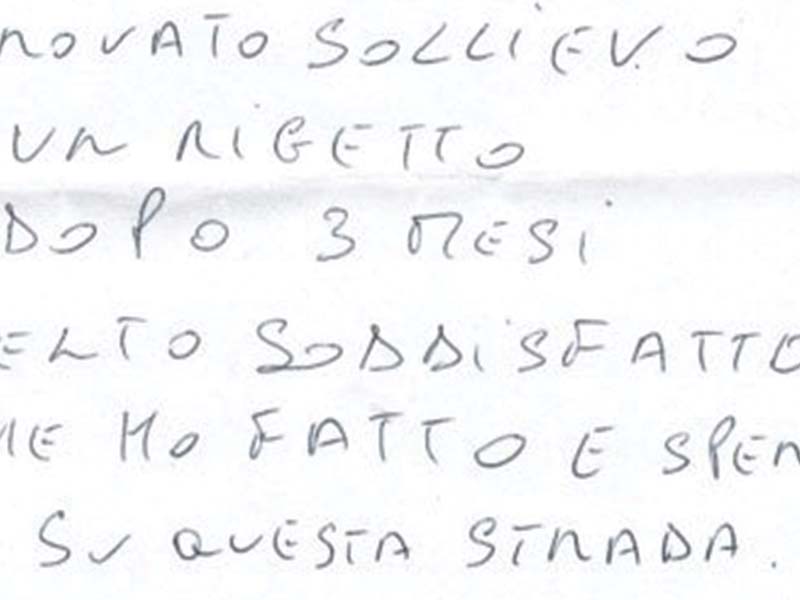 ROVATO SOLLIEVO
UN RIGETTO
DOPO 3 MESI
ELTO SODDISFATTO
HE HO FATTO E SPER
SU QUESTA STRADA.